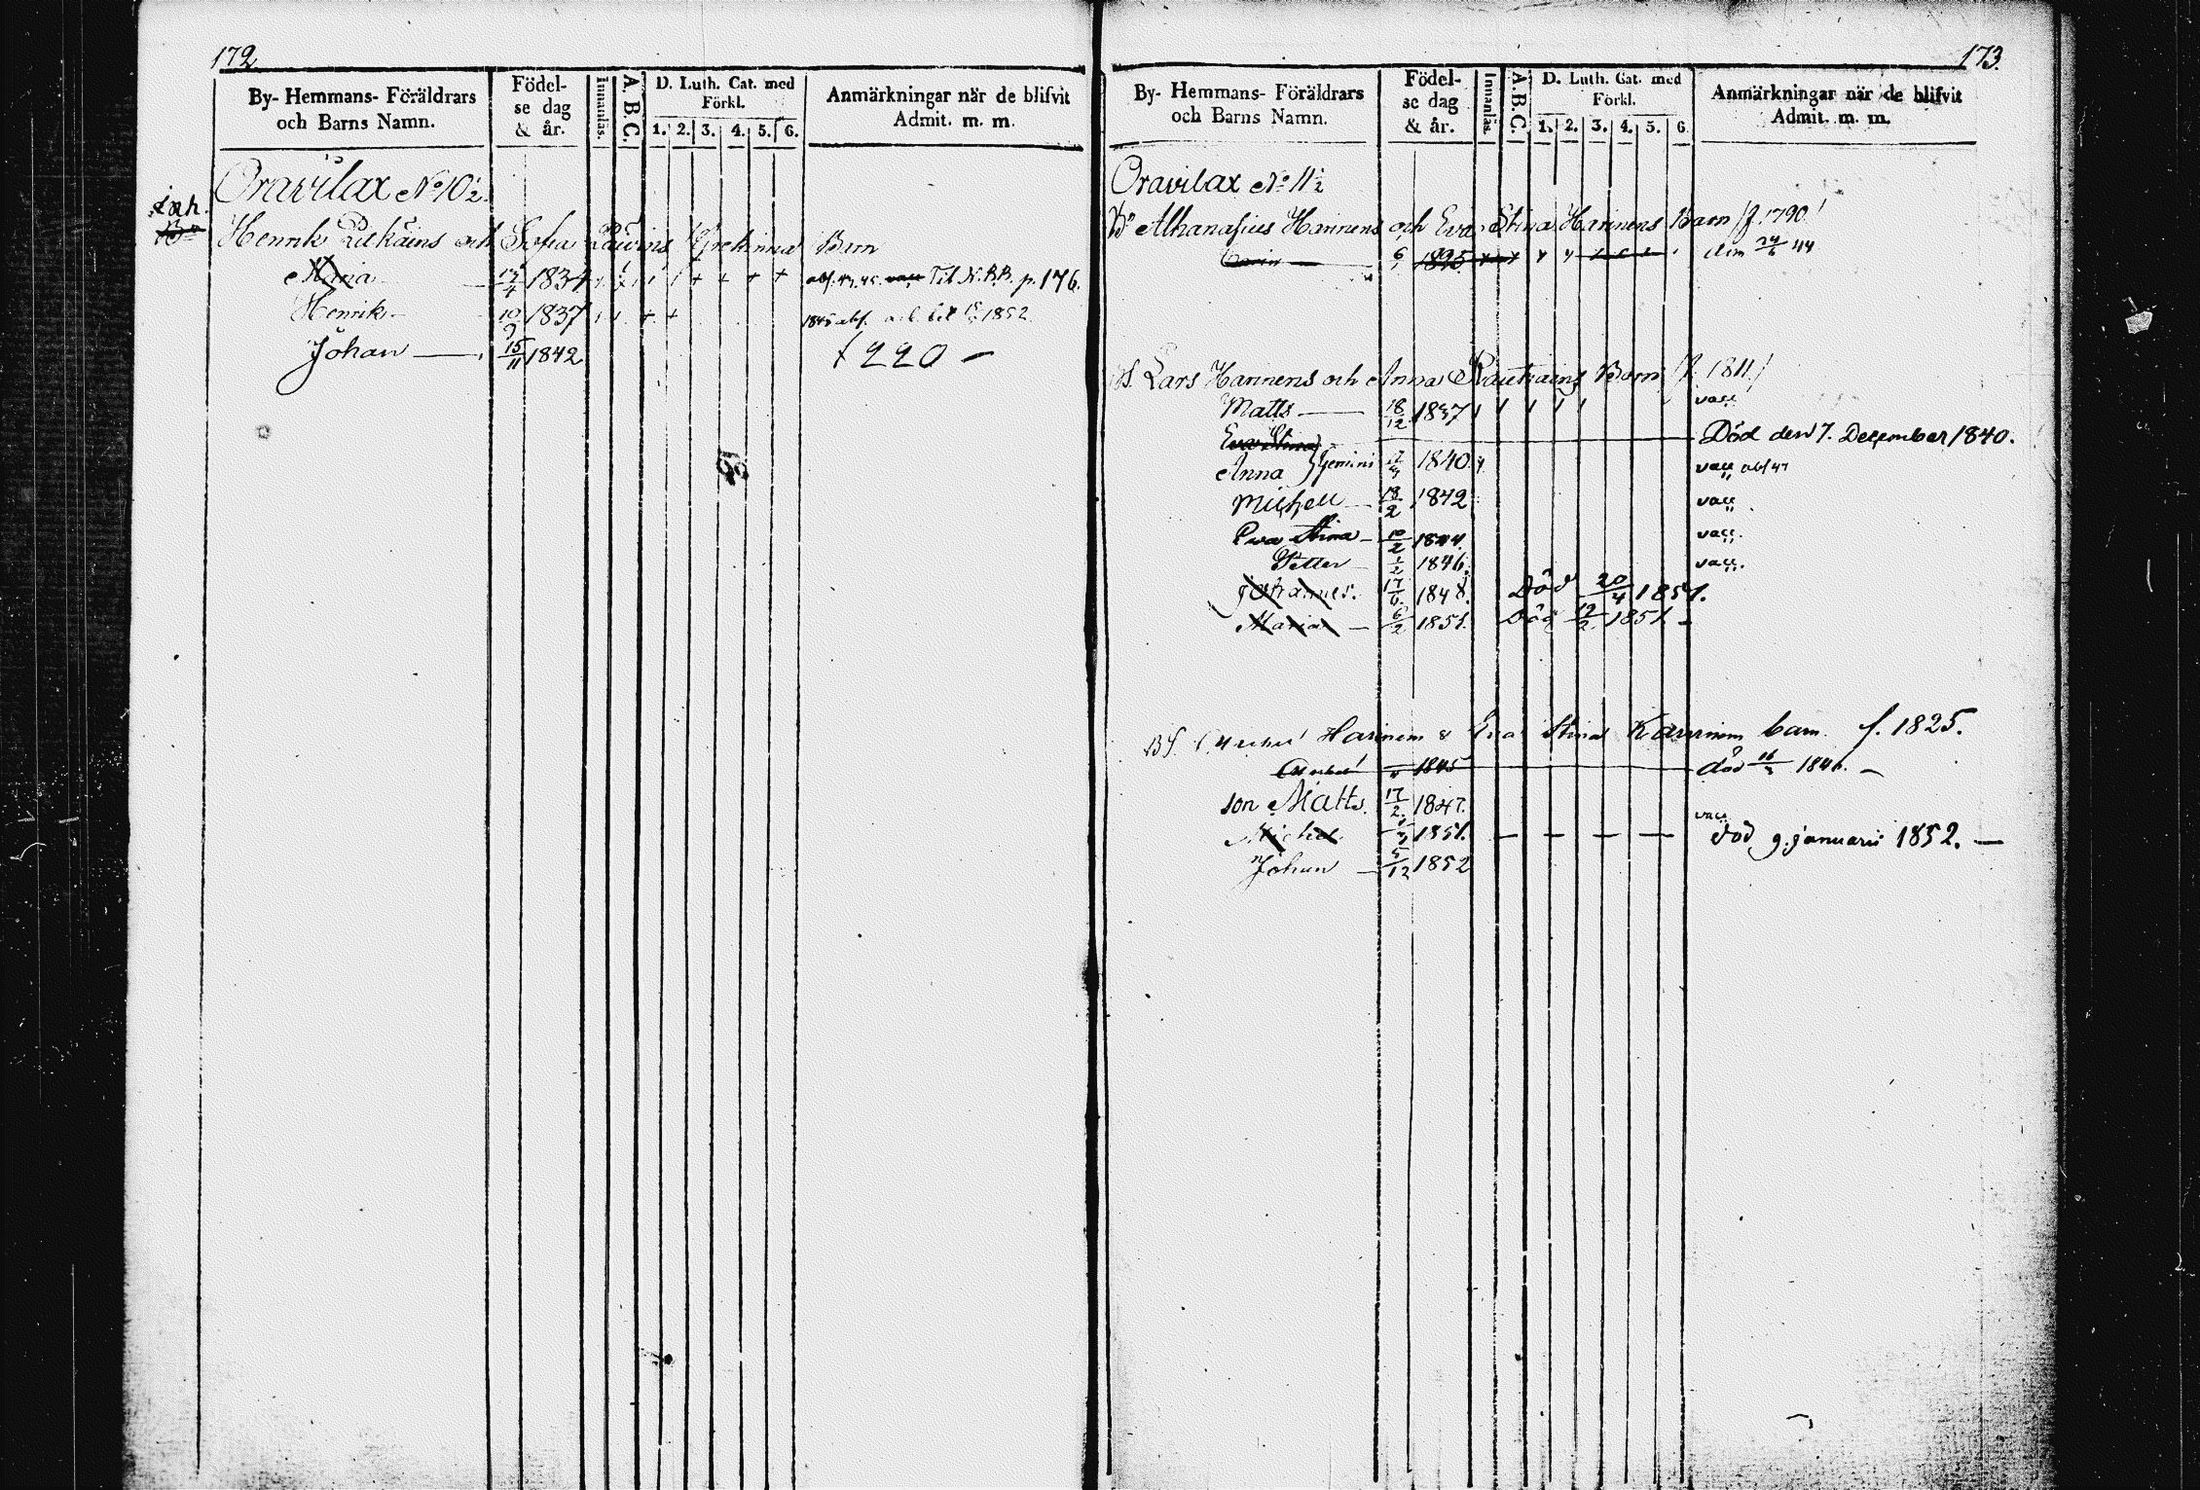 172
By- Hemmans- Föräldrars och Barns Namn.
Födel-se dag & år.
Innanläs.
A.B.C.
D. Luth. Cat. med Förkl.
1. 2. 3. 4. 5. 6.
Anmärkningar när de blifvit Admit. m. m.
Oravilax No 10 1/2.
inh.
Henrik och Sofia Barn
Maria 1834 Til N.B.B. p. 176.
Henrik 10/9 1837 1845 abs. 1852
Johan 15/11 1842 f 220 —
173.
By- Hemmans- Föräldrars och Barns Namn.
Födel-se dag & år.
Innanläs.
A.B.C.
D. Luth. Cat. med Förkl.
1. 2. 3. 4. 5. 6.
Anmärkningar när de blifvit Admit. m. m.
Oravilax No 11 1/2
Bd Athanasius Hannens och Eva Stina Hannens Barn /f. 1790/
6/1 1825 dim 24/6 44
BS. Lars Hannens och Anna Barn /f. 1811/
Matts 18/12 1837 vacc
Eva Stina Död den 7. December 1840.
Anna } Gemini 1840. vacc abs 47
Michell 18/2 1842 vacc
Eva Stina 10/2 1844 vacc.
Petter 1846. vacc.
Johannes. 17/6 1848. Död 20/4 1851.
Maria 6/2 1851. Död 12/2 1851 —
BS. Hannens & Eva Stina barn f. 1825.
1845 död 16/3 1846. —
son Matts. 17/2 1847. vacc
Michel 1851. — — — — död 9. januarii 1852. —
Johan 5/12 1852